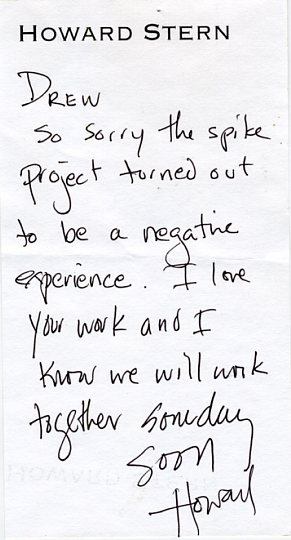 HOWARD STERN
DREW
So sorry the spike
project turned out
to be a negative
experience. I love
your work and I
know we will work
together someday
soon
Howard